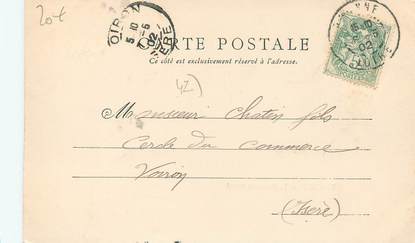 20€
CARTE POSTALE
Ce côté est exclusivement réservé à l'adresse.
Monsieur Chatin fils
Cercle du Commerce
Voiron
(Isère)